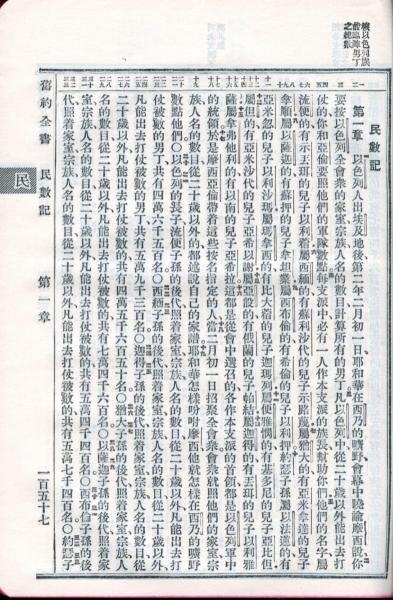 核以色列族
能臨陣男丁
之總數
民數記
第一章 以色列人出埃及地後第二年二月初一日耶和華在西乃的曠野會幕中曉諭摩西說你
要按以色列全會衆的家室宗族人名的數目計算所有的男丁凡以色列中從二十歲以外能出去打
仗的你和亞倫要照他們的軍隊數點每支派中必有一人作本支派的族長幫助你們他們的名字屬
流便的有示丟珥的兒子以利蓿屬西緬的有蘇利沙代的兒子示路蔑屬猶大的有亞米拿達的兒子
拿順屬以薩迦的有蘇押的兒子拿坦業屬西布倫的有希倫的兒子以利押約瑟子孫屬以法蓮的有
亞米忽的兒子以利沙瑪屬瑪拿西的有比大蓿的兒子迦瑪列屬便雅憫的有基多尼的兒子亞比但
屬但的有亞米沙代的兒子亞希以謝屬亞設的有俄蘭的兒子帕結屬迦得的有丟珥的兒子以利雅
薩屬拿弗他利的有以南的兒子亞希拉這都是從會中選召的各作本支派的首領都是以色列軍中
的統領於是摩西亞倫帶着這些按名指定的人當二月初一日招聚全會衆會衆就照他們的家室宗
族人名的數目從二十歲以外的都述說自己的家譜耶和華怎樣吩咐摩西他就怎樣在西乃的曠野
數點他們〇以色列的長子流便子孫的後代照着家室宗族人名的數目從二十歲以外凡能出去打
仗被數的男丁共有四萬六千五百名〇西緬子孫的後代照着家室宗族人名的數目從二十歲以外
凡能出去打仗被數的男丁共有五萬九千三百名〇迦得子孫的後代照着家室宗族人名的數目從
二十歲以外凡能出去打仗被數的共有四萬五千六百五十名〇猶大子孫的後代照着家室宗族人
名的數目從二十歲以外凡能出去打仗被數的共有七萬四千六百名〇以薩迦子孫的後代照着家
室宗族人名的數目從二十歲以外凡能出去打仗被數的共有五萬四千四百名〇西布倫子孫的後
代照着家室宗族人名的數目從二十歲以外凡能出去打仗被數的共有五萬七千四百名〇約瑟子
舊約全書 民數記 第一章 一百五十七
民